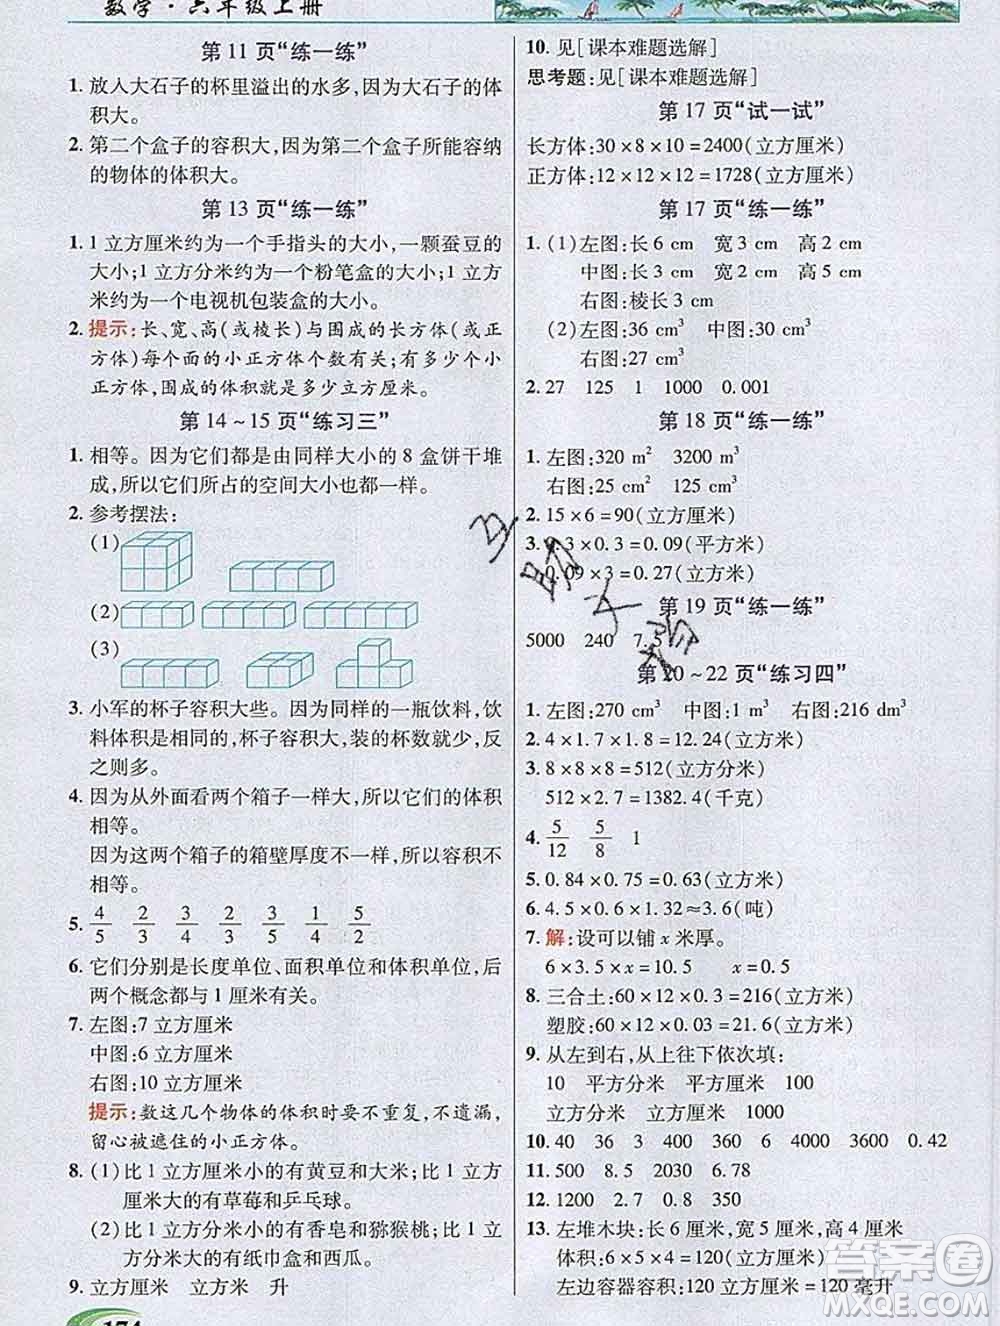 数学·六年级上册
第 11 页“练一练”
1. 放入大石子的杯里溢出的水多，因为大石子的体
积大。
2. 第二个盒子的容积大，因为第二个盒子所能容纳
的物体的体积大。
第 13 页“练一练”
1. 1 立方厘米约为一个手指头的大小，一颗蚕豆的
大小；1 立方分米约为一个粉笔盒的大小；1 立方
米约为一个电视机包装盒的大小。
2. 提示：长、宽、高(或棱长)与围成的长方体(或正
方体)每个面的小正方体个数有关；有多少个小
正方体，围成的体积就是多少立方厘米。
第 14～15 页“练习三”
1. 相等。因为它们都是由同样大小的 8 盒饼干堆
成，所以它们所占的空间大小也都一样。
2. 参考摆法：
(1)
(2)
(3)
3. 小军的杯子容积大些。因为同样的一瓶饮料，饮
料体积是一定的，杯子容积大，装的杯数就少，反
之则多。
4. 因为从外面看两个箱子一样大，所以它们的体积
相等。
因为这两个箱子的箱壁厚度不一样，所以容积不
相等。
5. 4/5 2/3 3/4 2/3 3/4 1/4 5/2
6. 它们分别是长度单位、面积单位和体积单位，后
两个概念都与 1 厘米有关。
7. 左图：7 立方厘米
中图：6 立方厘米
右图：10 立方厘米
提示：数这几个物体的体积时要不重复，不遗漏，
留心被遮住的小正方体。
8. (1)比 1 立方厘米小的有黄豆和大米；比 1 立方
厘米大的有草莓和乒乓球。
(2)比 1 立方分米小的有香皂和猕猴桃；比 1 立
方分米大的有纸巾盒和西瓜。
9. 立方厘米 立方米 升
174
10. 见[课本难题选解]
思考题：见[课本难题选解]
第 17 页“试一试”
长方体：30×8×10＝2400(立方厘米)
正方体：12×12×12＝1728(立方厘米)
第 17 页“练一练”
1. (1)左图：长 6 cm 宽 3 cm 高 2 cm
中图：长 3 cm 宽 2 cm 高 5 cm
右图：棱长 3 cm
(2)左图：36 cm³ 中图：30 cm³
右图：27 cm³
2. 27 125 1 1000 0.001
第 18 页“练一练”
1. 左图：320 m² 3200 m³
右图：25 cm² 125 cm³
2. 15×6＝90(立方厘米)
3. 0.3×0.3＝0.09(平方米)
0.09×3＝0.27(立方米)
第 19 页“练一练”
5000 240 7.3
第 20～22 页“练习四”
1. 左图：270 cm³ 中图：1 m³ 右图：216 dm³
2. 4×1.7×1.8＝12.24(立方米)
3. 8×8×8＝512(立方分米)
512×2.7＝1382.4(千克)
4. 5/12 5/8 1
5. 0.84×0.75＝0.63(立方米)
6. 4.5×0.6×1.32≈3.6(吨)
7. 解：设可以铺 x 米厚。
6×3.5×x＝10.5 x＝0.5
8. 三合土：60×12×0.3＝216(立方米)
塑胶：60×12×0.03＝21.6(立方米)
9. 从左到右，从上往下依次填：
10 平方分米 平方米 100
立方分米 立方米 1000
10. 40 36 3 400 360 6 4000 3600 0.42
11. 500 8.5 2030 6.78
12. 1200 2.7 0.8 350
13. 左堆木块：长 6 厘米，宽 5 厘米，高 4 厘米
体积：6×5×4＝120(立方厘米)
左边容器容积：120 立方厘米＝120 毫升
答案圈
MXQE.COM